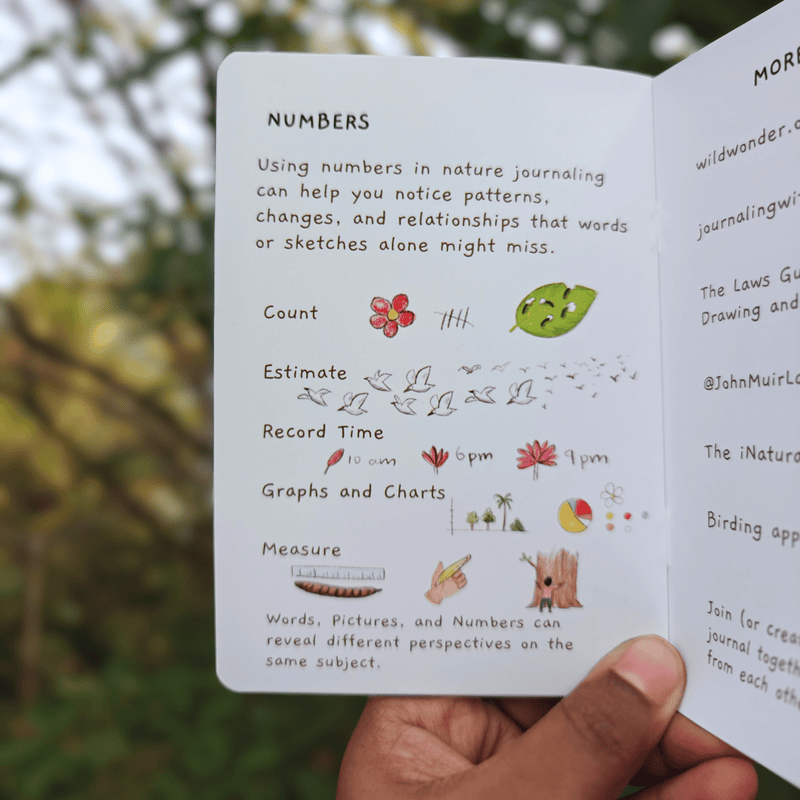 NUMBERS
Using numbers in nature journaling
can help you notice patterns,
changes, and relationships that words
or sketches alone might miss.
Count
Estimate
Record Time
10 am 6pm 9pm
Graphs and Charts
Measure
Words, Pictures, and Numbers can
reveal different perspectives on the
same subject.
MORE
wildwonder.o
journalingwi
The Laws Gu
Drawing and
@JohnMuirLa
The iNatura
Birding app
Join (or crea
journal togeth
from each oth